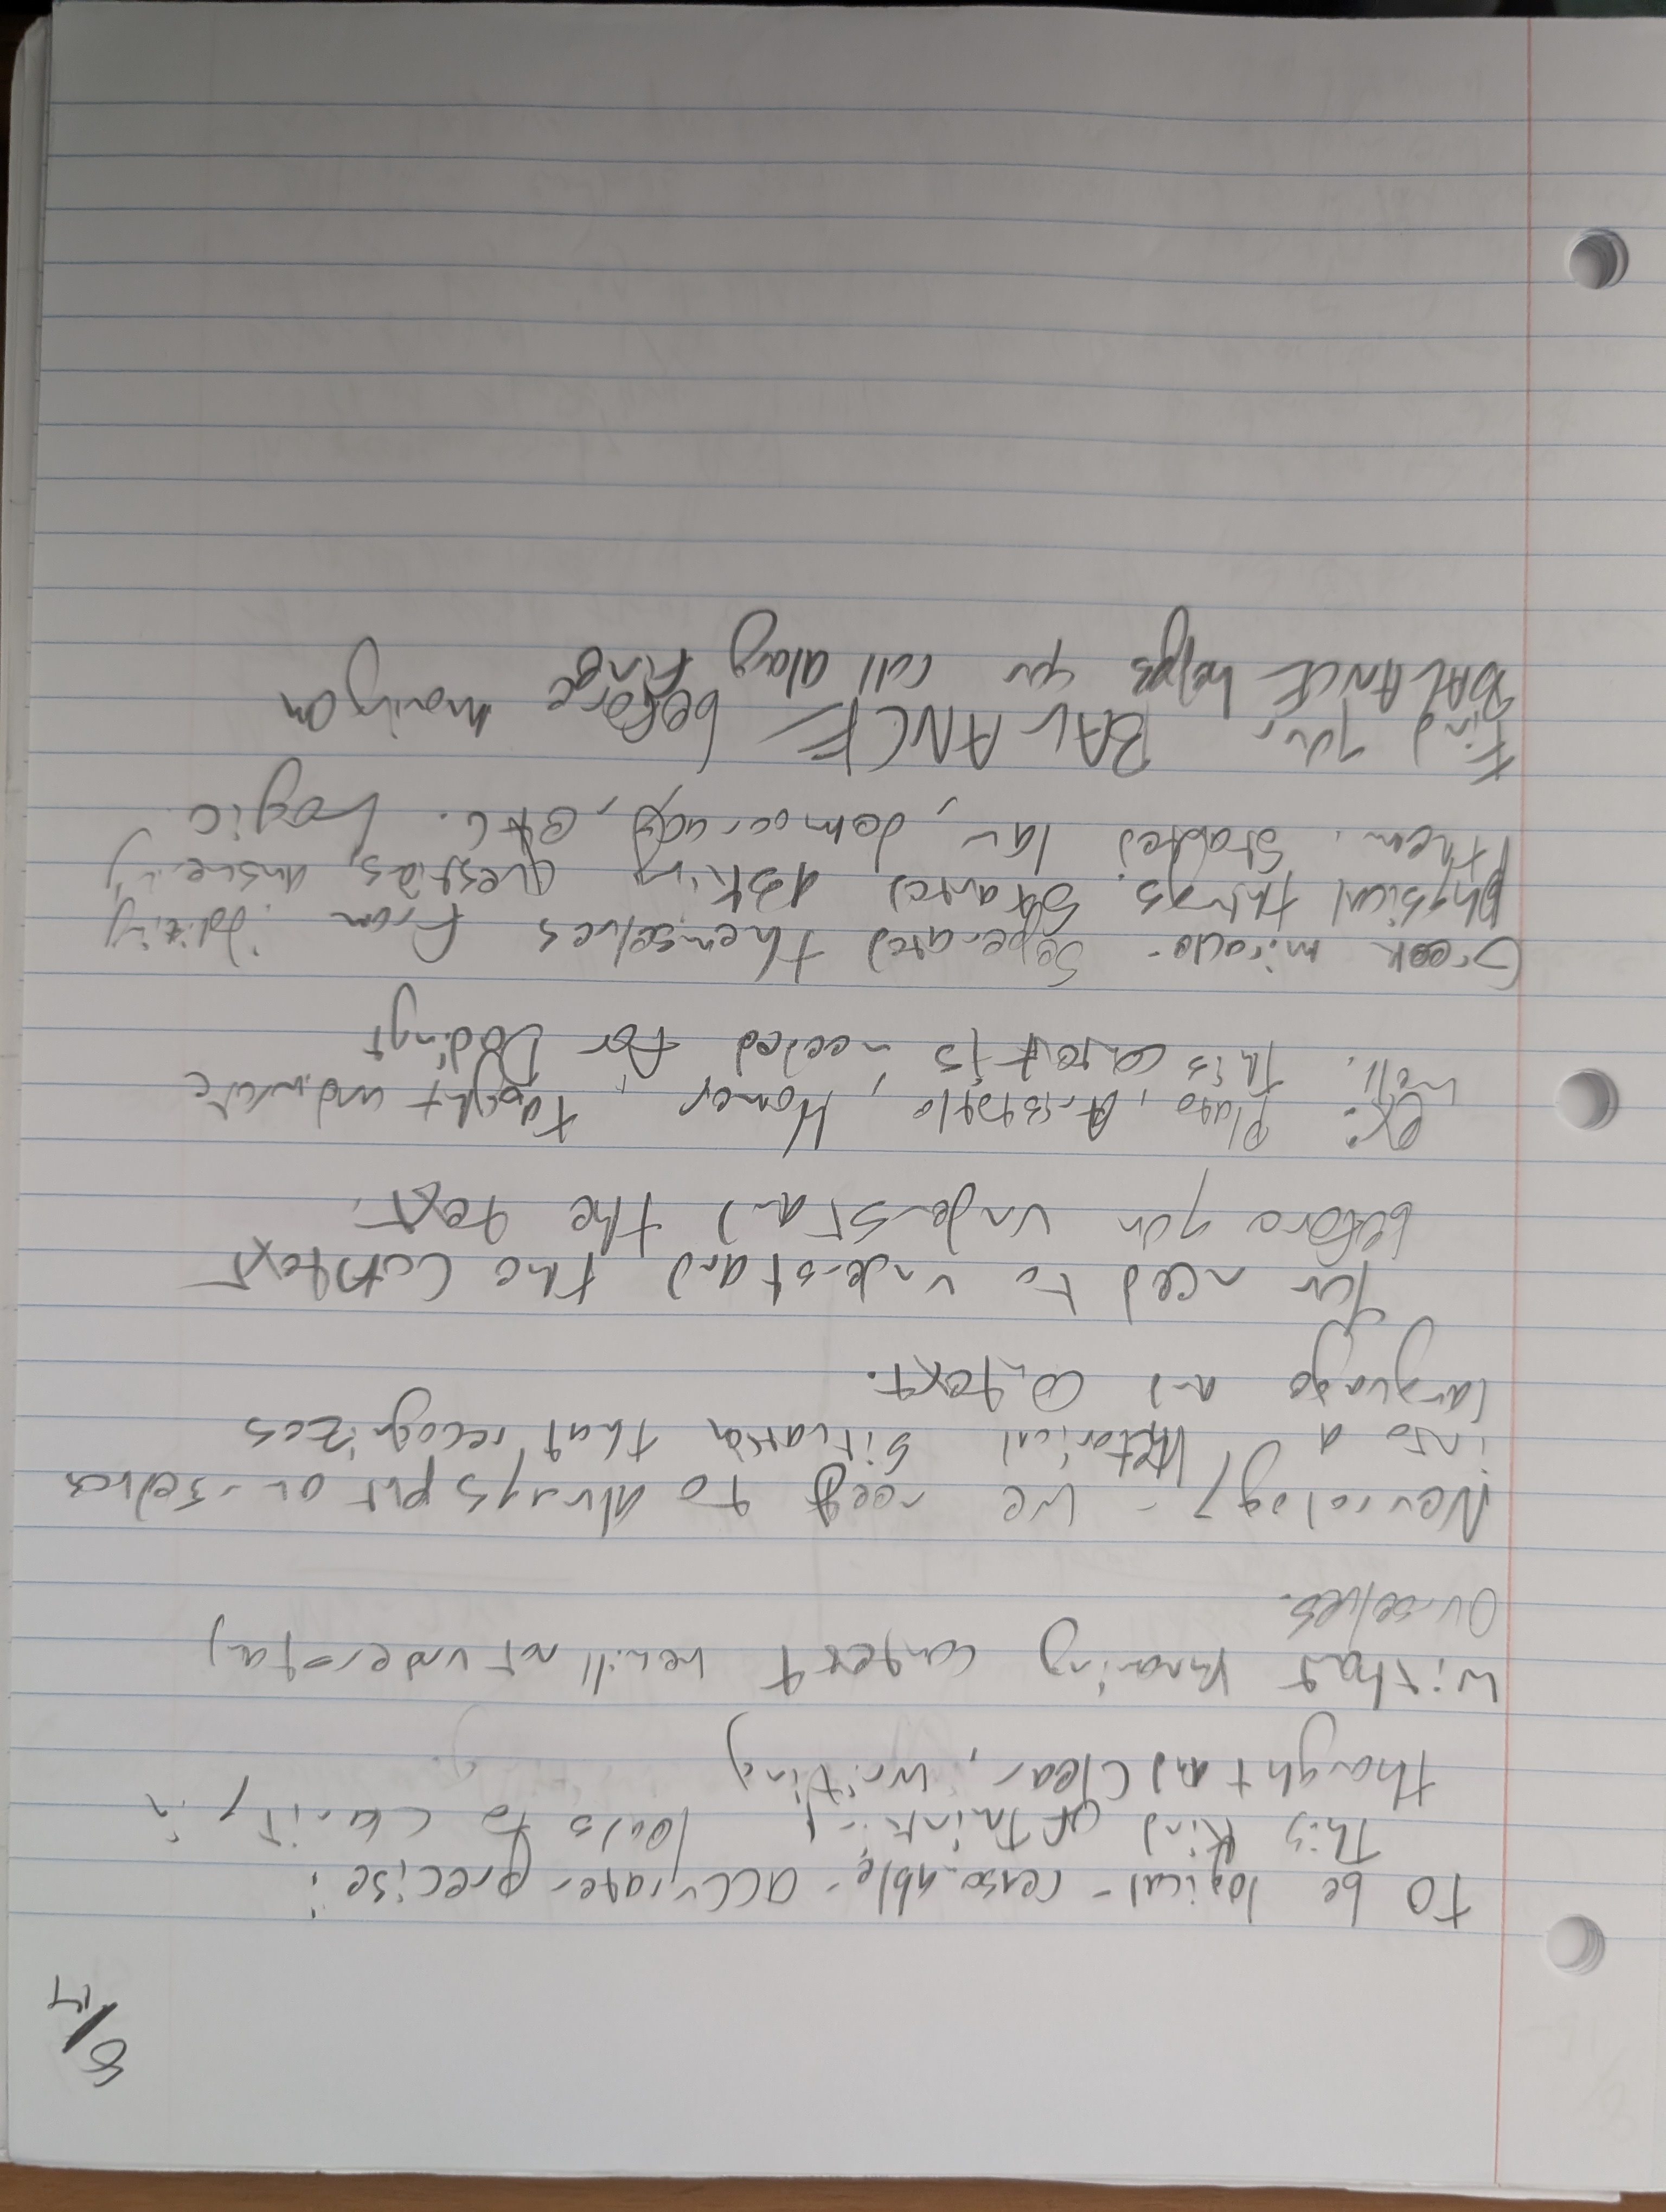 8/14
To be logical - reasonable - accurate - precise:
This kind of thinking leads to clarity in
thought and clear, writing
without knowing context we will not understand
ourselves.
Neurology - we need to always put ourselves
into a situation that recognizes
language and context.
You need to understand the context
before you understand the text.
ex: Plato, Aristotle, Homer, taught and wrote
well. This context is needed for
Greek miracle - Seperated themselves from
physical things. Started asking questions, answering
them. Started law, democracy, etc. Logic
Find your BALANCE before moving on
BALANCE helps you roll along fine